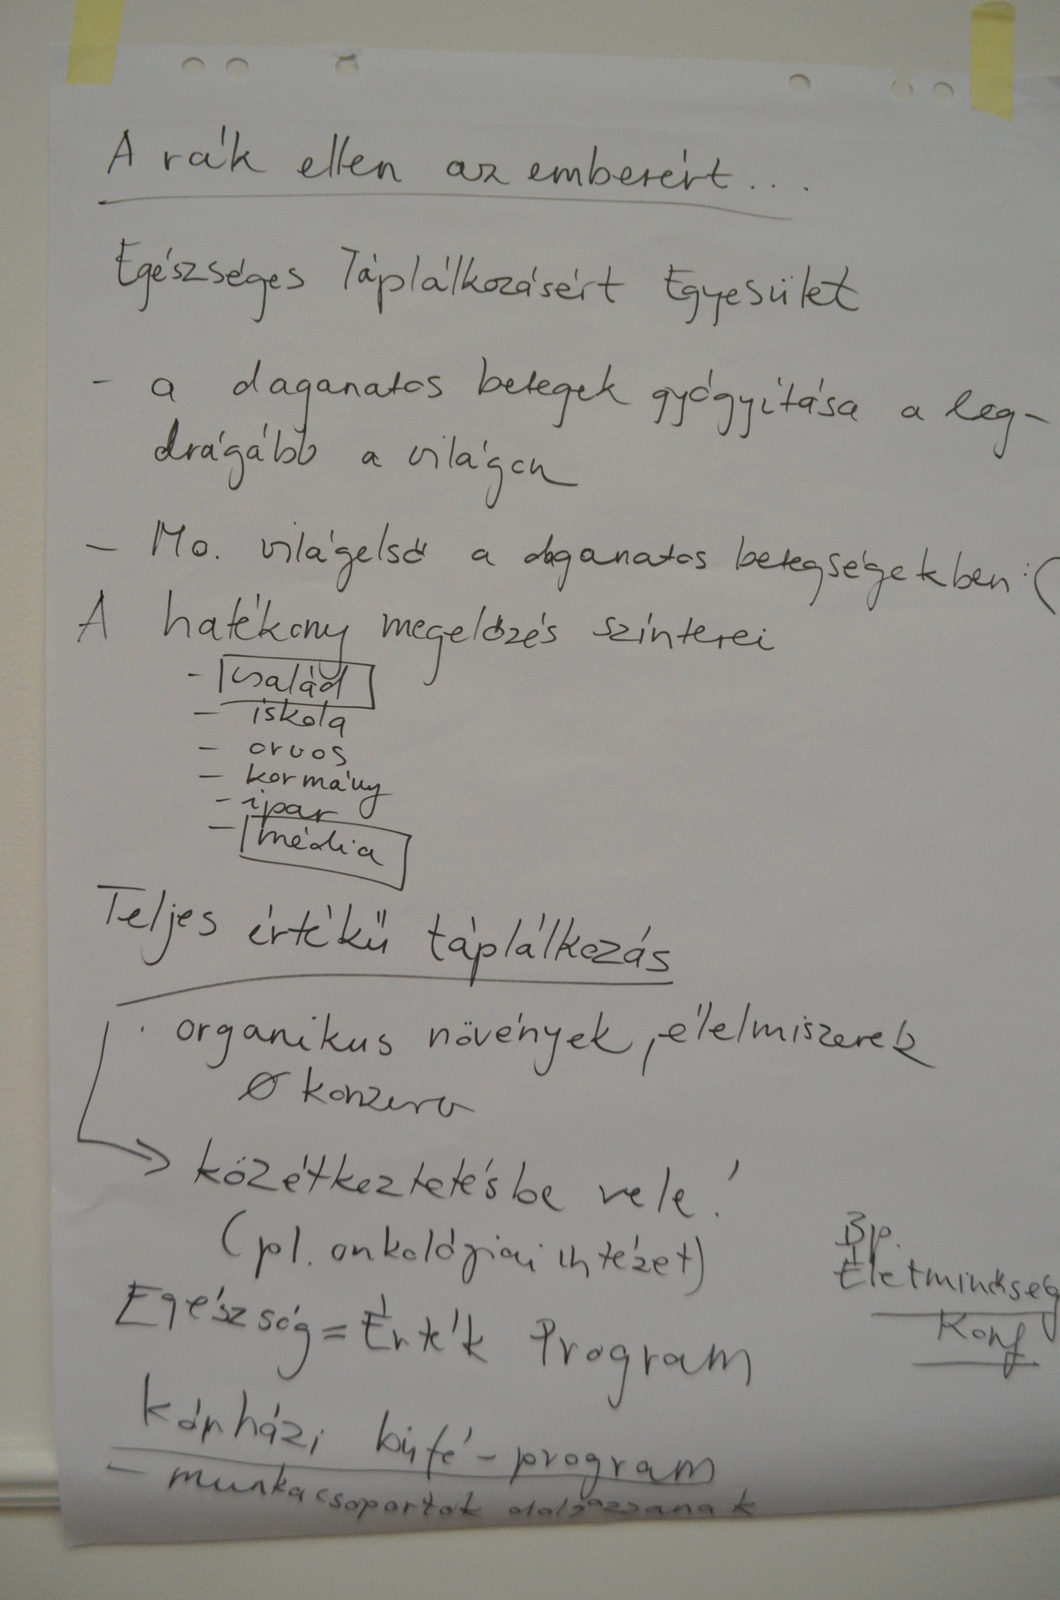 A rák ellen az emberért...
Egészséges Táplálkozásért Egyesület
- a daganatos betegek gyógyítása a leg-
drágább a világon
- Mo. világelső a daganatos betegségekben :(
A hatékony megelőzés színterei
- család
- iskola
- orvos
- kormány
- ipar
- média
Teljes értékű táplálkozás
· organikus növények, élelmiszerek
Ø konzerv
→ közétkeztetésbe vele!
(pl. onkológiai intézet)
Egészség = Érték Program
Kórházi büfé-program
- munkacsoportok dolgozzanak
Bp.
Életminőség
Konf